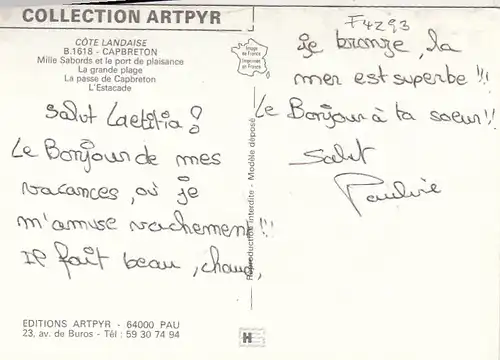 COLLECTION ARTPYR
CÔTE LANDAISE
B.1618 - CAPBRETON
Mille Sabords et le port de plaisance
La grande plage
La passe de Capbreton
L'Estacade
Salut Laetitia!
Le Bonjour de mes
vacances, où je
m'amuse vachement!!
Il fait beau, chaud,
EDITIONS ARTPYR - 64000 PAU
23, av. de Buros - Tél : 59 30 74 94
Image de France
Imprimée en France
Reproduction interdite - Modèle déposé
F4293
je bronze, la
mer est superbe!!
Le Bonjour à ta soeur!!
Salut
Pauline
H